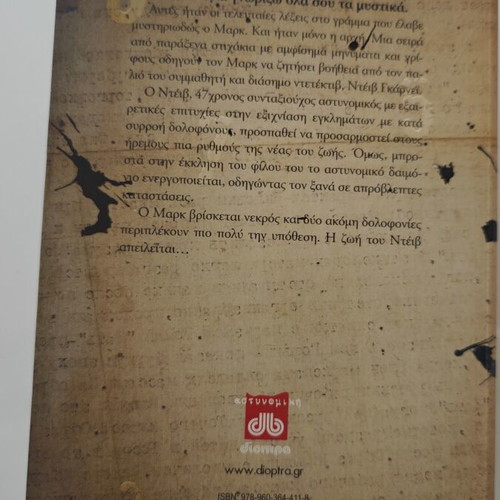 γνωρίζω όλα σου τα μυστικά.
Αυτές ήταν οι τελευταίες λέξεις στο γράμμα που έλαβε
μυστηριωδώς ο Μαρκ. Και ήταν μόνο η αρχή. Μια σειρά
από παράξενα στιχάκια με αμφίσημα μηνύματα και γρί-
φους οδηγούν τον Μαρκ να ζητήσει βοήθεια από τον πα-
λιό του συμμαθητή και διάσημο ντετέκτιβ, Ντέιβ Γκάρνεϊ.
Ο Ντέιβ, 47χρονος συνταξιούχος αστυνομικός με εξαι-
ρετικές επιτυχίες στην εξιχνίαση εγκλημάτων με κατά
συρροή δολοφόνους, προσπαθεί να προσαρμοστεί στους
ήρεμους πια ρυθμούς της νέας του ζωής. Όμως, μπρο-
στά στην έκκληση του φίλου του το αστυνομικό δαιμό-
νιο ενεργοποιείται, οδηγώντας τον ξανά σε απρόβλεπτες
καταστάσεις.
Ο Μαρκ βρίσκεται νεκρός και δύο ακόμη δολοφονίες
περιπλέκουν πιο πολύ την υπόθεση. Η ζωή του Ντέιβ
απειλείται...
αστυνομική
διόπτρα
www.dioptra.gr
ISBN: 978-960-364-411-8